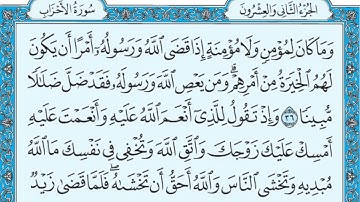 الجُزْءُ الثَّانِي وَالعِشْرُونَ سُورَةُ الأَحْزَابِ
وَمَا كَانَ لِمُؤْمِنٍ وَلَا مُؤْمِنَةٍ إِذَا قَضَى ٱللَّهُ وَرَسُولُهُۥٓ أَمْرًا أَن يَكُونَ
لَهُمُ ٱلْخِيَرَةُ مِنْ أَمْرِهِمْ ۗ وَمَن يَعْصِ ٱللَّهَ وَرَسُولَهُۥ فَقَدْ ضَلَّ ضَلَٰلًا
مُّبِينًا ٣٦ وَإِذْ تَقُولُ لِلَّذِىٓ أَنْعَمَ ٱللَّهُ عَلَيْهِ وَأَنْعَمْتَ عَلَيْهِ
أَمْسِكْ عَلَيْكَ زَوْجَكَ وَٱتَّقِ ٱللَّهَ وَتُخْفِى فِى نَفْسِكَ مَا ٱللَّهُ
مُبْدِيهِ وَتَخْشَى ٱلنَّاسَ وَٱللَّهُ أَحَقُّ أَن تَخْشَىٰهُ ۖ فَلَمَّا قَضَىٰ زَيْدٌ